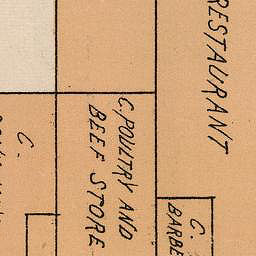 RESTAURANT
C. POULTRY AND
BEEF STORE
C.
C.
BARBE